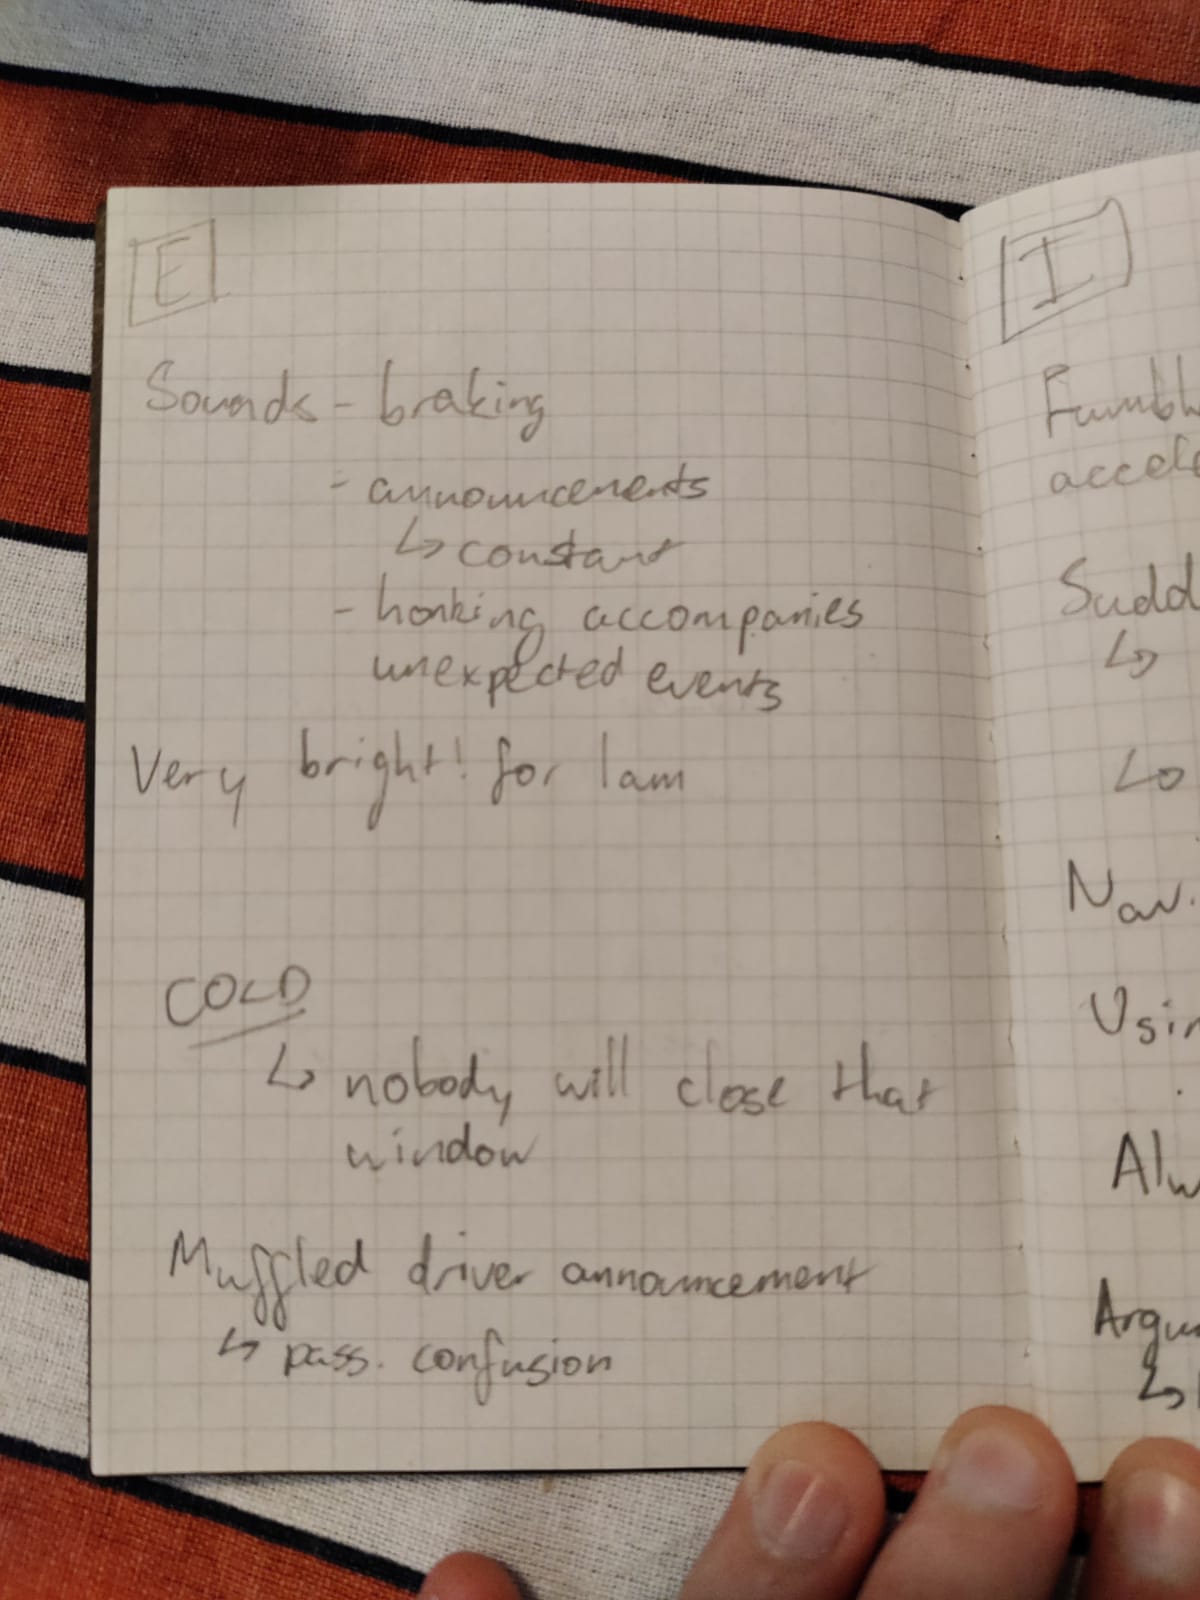 E
Sounds - braking
- announcements
↳ constant
- honking accompanies
unexpected events
Very bright! for 1am
COLD
↳ nobody will close that
window
Muffled driver announcement
↳ pass. confusion
I
Fumbl
accele
Sudd
↳
↳
Nav.
Usin
Alw
Argu
↳